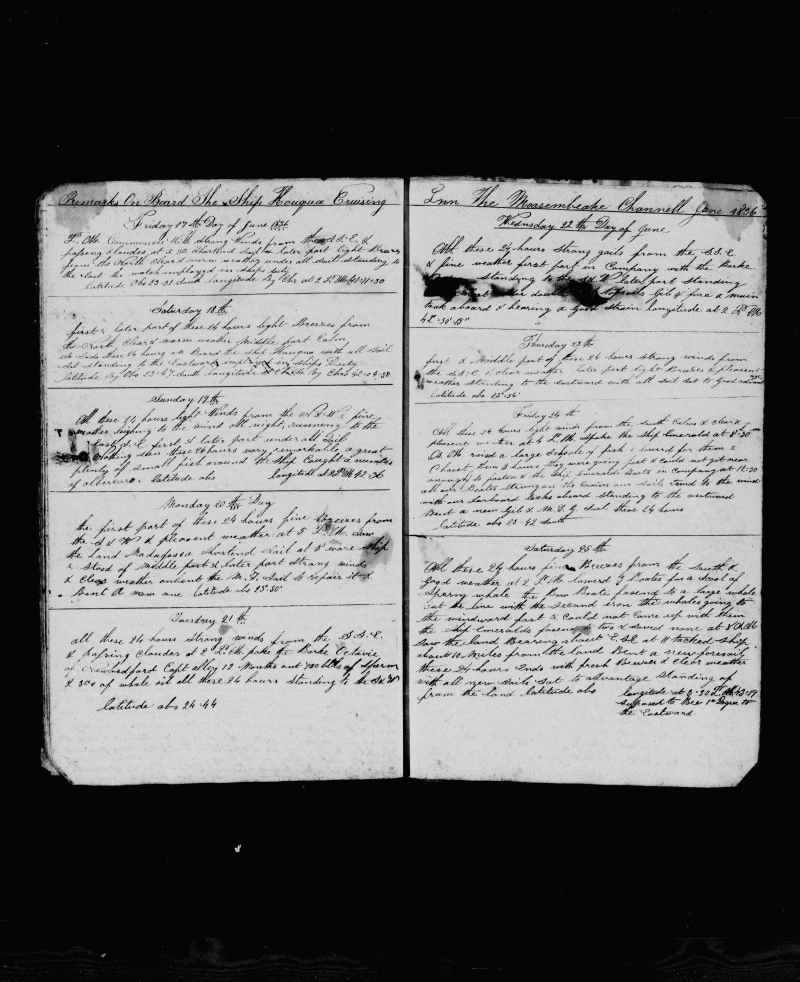 Remarks On Board The Ship Houqua Cruising
Friday 17th Day of June 1836
P. Mt. Commences With strong Winds from the S S. E. &
passing Clouder at 5 PM Shortend Sail later part light Breezes
from the North Clear & warm weather under all sail standing to
the East the water employed in ships duty
Latitude Obs 23-31 South longitude By Chr at 2 P.M. 41=11=30
Saturday 18th
first & later part of these 24 hours light Breezes from
the North Clear & warm weather Middle part Calm
So Ends these 24 hours on Board the Ship Houqua with all Sail
Set standing to the Eastward imployed in ships Duty
Latitude By Obs 23-47 South longitude By Chro 42=04=30
Sunday 19th
All these 24 hours light Winds from the & fine
weather to the wind all night running to the
East S. E first & later part under all Sail
nothing seen these 24 hours vary remarkable a great
plenty of small fish around the Ship Caught a number
of albercore Latitude obs longitude at 2 P.M. 42=36
Monday 20th Day
the first part of these 24 hours fine Breezes from
the S & W & pleasent weather at 5 P.M. Saw
the land Madagasca Shortend Sail at 8 wore Ship
& Stood of Middle part & later part Strong winds
& Clear weather unbent the M. T. Sail to repair it &
Bent A new one Latitude obs 25.50
Tuesday 21th
all these 24 hours Strong winds from the S. S. E
& passing Clouder at 2 P.M. spoke the Barke Octavie
of Capt Alley 12 Months out 700 bbls of Sperm
& 300 of whale oil all these 24 hours Standing to the S & W
Latitude obs 24.44
Inn The Moasembeake Channell June 1836
Wensday 22th Day of June
All these 24 hours Strong gails from the S. S. E
& fine weather first part in Company with the Barke
standing to the S & W later part Standing
Gib & fore & main
took aboard & bearing a Good Strain Longitude at 2 P. M
42=30=15
Thursday 23th
first & Middle part of these 24 hours strong winds from
the S. S. E & Clear weather later part light Breezes & pleasent
weather Standing to the eastward with all Sail Set to Good advantage
Latitude obs 23=56
Friday 24th
All these 24 hours light winds from the South Calms & Clear &
pleasent weather at 4 P. M. Spoke the Ship Emerald at 8=30 am
raised a large School of fish & loward for them &
Chased them 3 hours they were going fast & Could not get near
enough to fasten & the Ship Emeralds boats in Company at 12=30
all our Boates Strong on the Cranes our Sails to the wind
with our larboard tacks aboard standing to the westward
Bent a new Gib & M. T. G Sail these 24 hours
Latitude obs 23=42 South
Saturday 25th
All these 24 hours fine Breezes from the South &
Good weather at 2 P. M. lowerd 4 Boates for a Scool of
Sparm whale the Bow Boate fasend to a large whale
Cut the line with the Second iron the whales going to
the windward fast & Could not Come up with them
the Ship Emeralds fasend to two & saved none at 8 P.M.
Saw the land Bearing about E. S. E at 11 tacked Ship
about 10 Miles from the land Bent a new foresail
these 24 hours Ends with fresh Breezes & Clear weather
with all new Sails Sat to advantage Standing of
from the land Latitude obs longitude at 2=30 P.M. 43=19
Suposed to Bee 1st Degree to
the Eastward